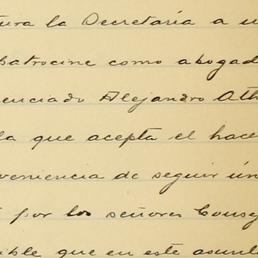 tura la Secretaría a u
patrocine como abogad
enciado Alejandro Ath
la que acepta el hace
veniencia de seguir ún
por los señores Conse
ible que en este asunt